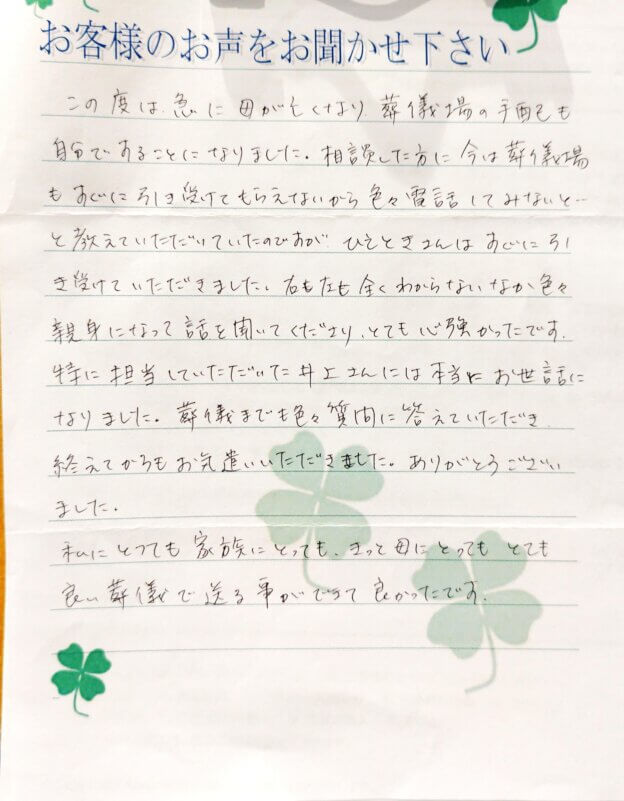 お客様のお声をお聞かせ下さい
この度は、急に母が亡くなり、葬儀場の手配も
自分ですることになりました。相談した方に今は葬儀場
もすぐに引き受けてもらえないから色々電話してみないと…
と教えていただいていたのですが、ひとときさんはすぐに引
き受けていただきました。右も左も全くわからないなか色々
親身になって話を聞いてくださり、とても心強かったです。
特に担当していただいた井上さんには本当にお世話に
なりました。葬儀までも色々質問に答えていただき、
終えてからもお気遣いいただきました。ありがとうござい
ました。
私にとっても家族にとっても、きっと母にとってもとても
良い葬儀で送る事ができて良かったです。